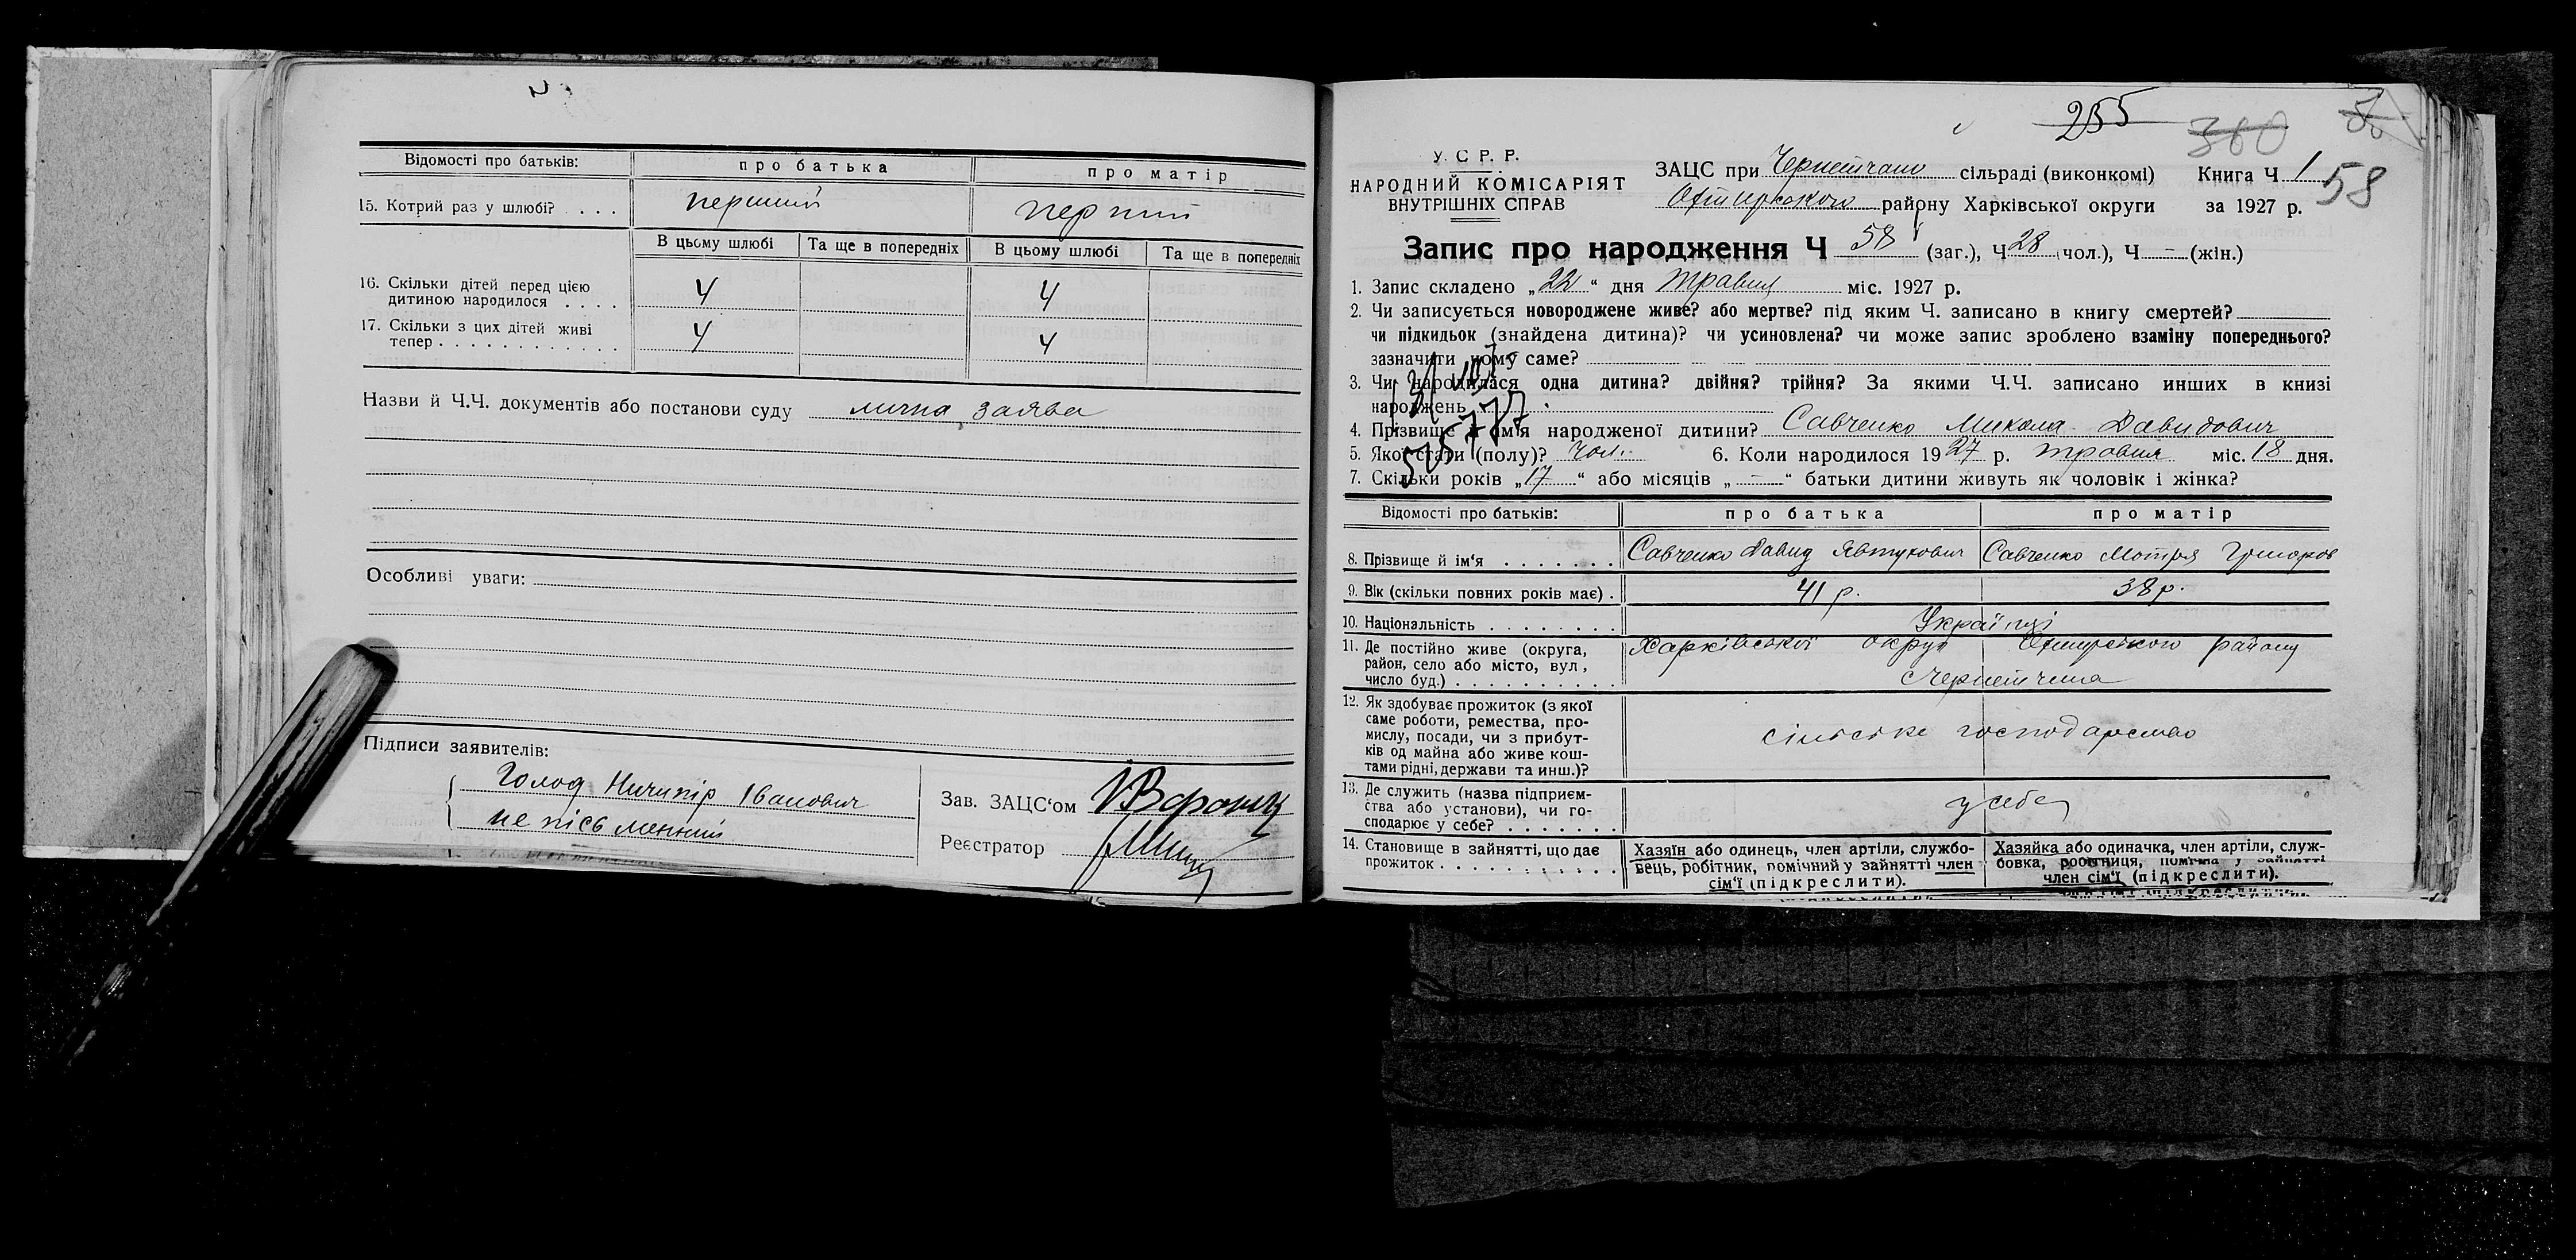 Відомості про батьків: про батька про матір
15. Котрий раз у шлюбі? . . . . перший перший
В цьому шлюбі Та ще в попередніх В цьому шлюбі Та ще в попередніх
16. Скільки дітей перед цією
дитиною народилося . . . . 4 4
17. Скільки з цих дітей живі
тепер . . . . . . . . . . . . 4 4
Назви й Ч.Ч. документів або постанови суду лична заява
Особливі уваги:
Підписи заявителів:
Голод Ничипір Іванович
не пісьменний
Зав. ЗАЦС'ом
Реєстратор
255
360
58
У. С. Р. Р.
НАРОДНИЙ КОМІСАРІЯТ
ВНУТРІШНІХ СПРАВ
ЗАЦС при сільраді (виконкомі) Книга Ч 1
Охтирського району Харківської округи за 1927 р.
Запис про народження Ч 58 (заг.), Ч 28 (чол.), Ч - (жін.)
1. Запис складено „22“ дня травня міс. 1927 р.
2. Чи записується новороджене живе? або мертве? під яким Ч. записано в книгу смертей?
чи підкидьок (знайдена дитина)? чи усиновлена? чи може запис зроблено взаміну попереднього?
зазначити чому саме?
3. Чи народилася одна дитина? двійня? трійня? За якими Ч.Ч. записано инших в книзі
народжень
4. Прізвище й ім'я народженої дитини? Савченко Микола Давидович
5. Якої стати (полу)? чол. 6. Коли народилося 1927 р. травня міс. 18 дня.
7. Скільки років „17“ або місяців „-“ батьки дитини живуть як чоловік і жінка?
Відомості про батьків: про батька про матір
8. Прізвище й ім'я . . . . . . . Савченко Давид Явтухович Савченко Мотря Григоров
9. Вік (скільки повних років має) . 41 р. 38 р.
10. Національність . . . . . . . . Українці
11. Де постійно живе (округа,
район, село або місто, вул.,
число буд.) . . . . . . . . . . Харківської округ Охтирського району
Чернетчина
12. Як здобуває прожиток (з якої
саме роботи, ремества, про-
мислу, посади, чи з прибут-
ків од майна або живе кош-
тами рідні, держави та инш.)?
сільське господарство
13. Де служить (назва підприєм-
ства або установи), чи го-
сподарює у себе? . . . . . . . у себе
14. Становище в зайнятті, що дає
прожиток . . . . . . . . . . .
Хазяїн або одинець, член артіли, службо-
вець, робітник, помічний у зайнятті член
сім'ї (підкреслити).
Хазяйка або одиначка, член артіли, служ-
бовка, робітниця, помічна у зайнятті
член сім'ї (підкреслити).